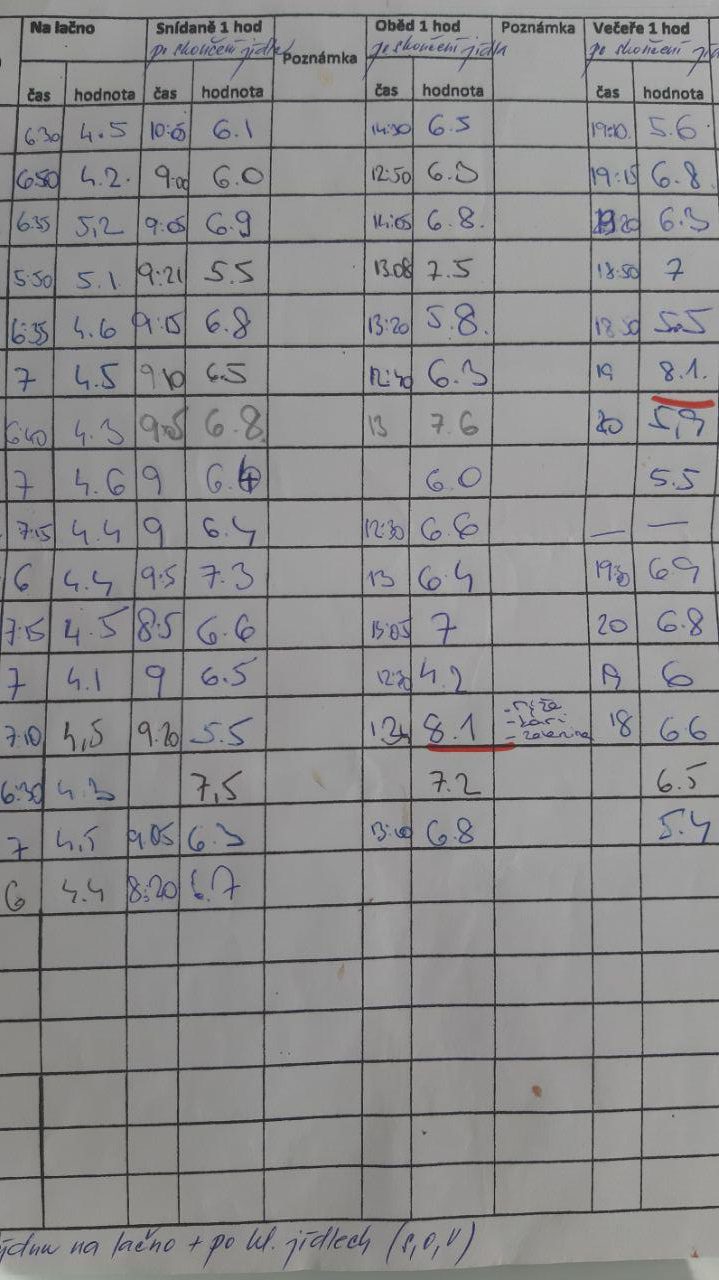 Na lačno Snídaně 1 hod Poznámka Oběd 1 hod Poznámka Večeře 1 hod
po skončení jídla po skončení jídla po skončení
čas hodnota čas hodnota čas hodnota čas hodnota
6:30 4.5 10:05 6.1 14:30 6.5 19:10 5.6
6:50 4.2 9:00 6.0 12:50 6.3 19:15 6.8
6:35 5,2 9:05 6.9 14:05 6.8 19:20 6.3
5:50 5.1 9:21 5.5 13:08 7.5 18:50 7
6:35 4.6 9:15 6.8 13:20 5.8 18:50 5.5
7 4.5 9:10 6.5 12:40 6.3 19 8.1
6:40 4.3 6.8 13 7.6 20 5,9
7 4.6 9 6.4 6.0 5.5
7:15 4.4 9 6.4 12:30 6.6 — —
6 4.4 9:5 7.3 13 6.4 19:30 6.9
7:15 4.5 8:5 6.6 13:05 7 20 6.8
7 4.1 9 6.5 12:30 4.2 6
7:10 4,5 9:20 5.5 8.1 - rýže 18 6.6
- kari
- zelenina
6:30 4.3 7,5 7.2 6.5
7 4,5 9:05 6.3 6.8 5.4
6 4.4 8:20 6.7
na lačno + po hl. jídlech (s, o, v)